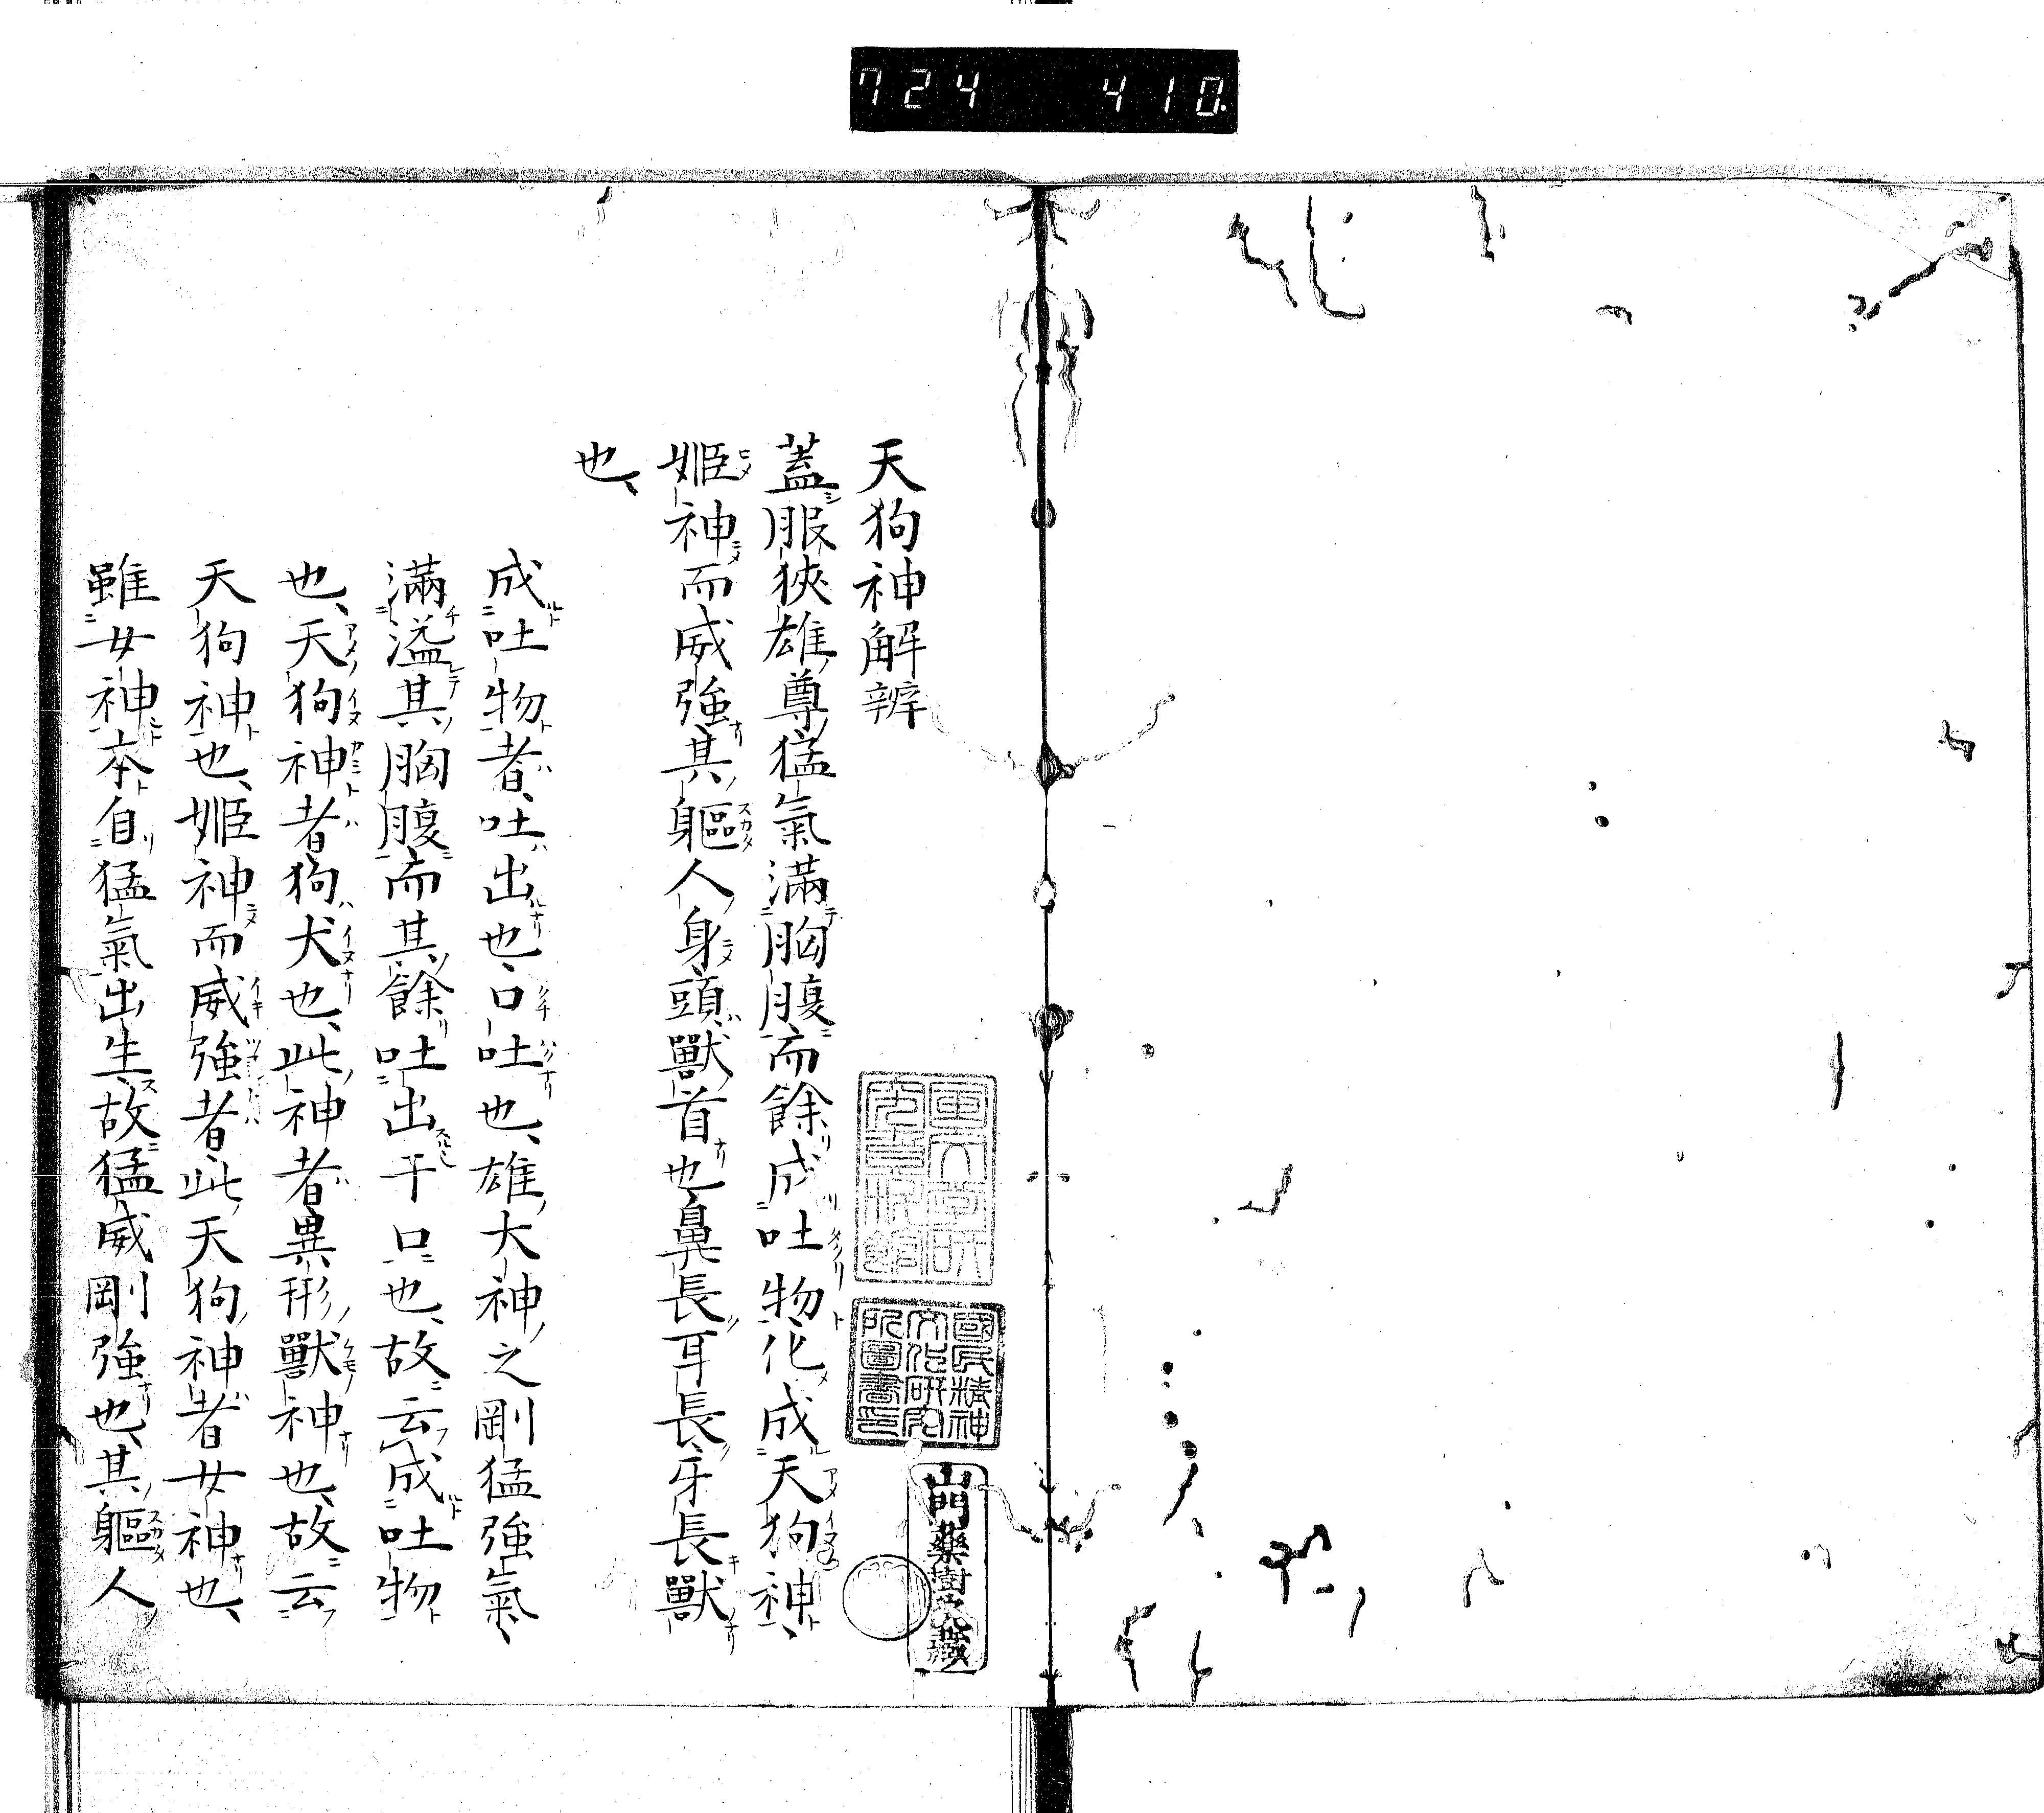 724 410
天狗神解辨
蓋服狹雄尊猛氣滿胸腹而餘成吐物化成天狗神、
姬神而威強其軀人身頭獸首也鼻長耳長牙長獸
也、
成吐物者、吐出也、口吐也、雄大神之剛猛強氣、
滿溢其胸腹而其餘吐出于口也、故云成吐物
也、天狗神者狗犬也、此神者異形獸神也、故云
天狗神也、姬神而威強者此天狗神者女神也、
雖女神本自猛氣出生故猛威剛強也、其軀人
國民精神
文化研究
所圖書印
山門藥樹院藏